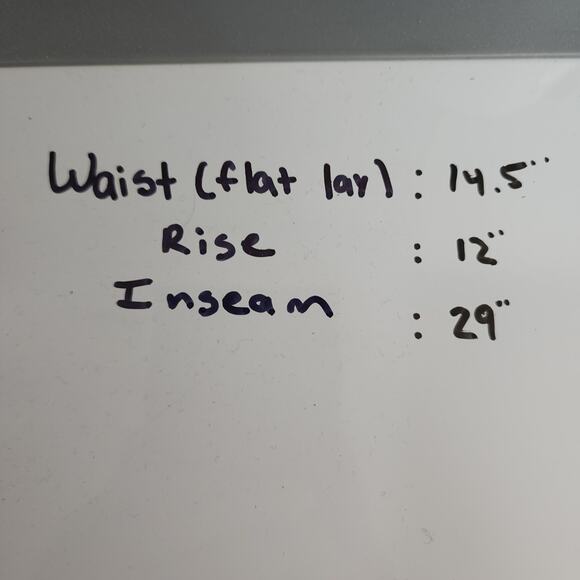 Waist (flat lay) : 14.5"
Rise : 12"
Inseam : 29"